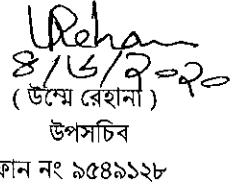 URehana
৪/৬/২০২০
( উম্মে রেহানা )
উপসচিব
ফোন নং ৯৫৪৯১২৮